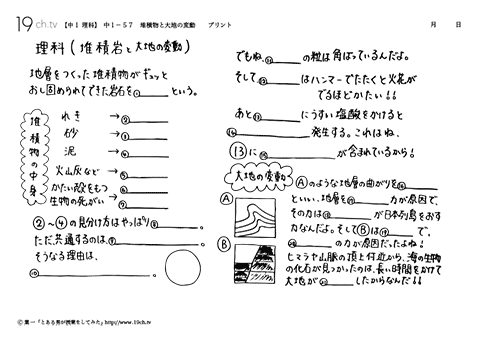 19ch.tv 【中1理科】 中1-57 堆積物と大地の変動 プリント 月 日
理科(堆積岩と大地の変動)
地層をつくった堆積物がギュッと
おし固められてできた岩石を①という。
堆積物の中身
れき → ②
砂 → ③
泥 → ④
火山灰など → ⑤
かたい殻をもつ → ⑥
生物の死がい → ⑦
②~④の見分け方はやっぱり⑧。
ただ、共通するのは⑨。
そうなる理由は、
⑩。
でもね、⑪の粒は角ばっているんだよ。
そして⑫はハンマーでたたくと火花が
でるほどかたい!!
あと⑬にうすい塩酸をかけると
⑭発生する。これはね、
⑬に⑮が含まれているから!
大地の変動
Ⓐのような地層の曲がりを⑯
といい、地層を⑰力が原因で、
その力は⑱が日本列島をおす
力なんだよ。そしてⒷは⑲で、
⑳の力が原因だったよね!
ヒマラヤ山脈の頂上付近から、海の生物
の化石が見つかったのは、長い時間をかけて
大地が㉑したからなんだ!!
Ⓐ
Ⓑ
© 葉一「とある男が授業をしてみた」http://www.19ch.tv